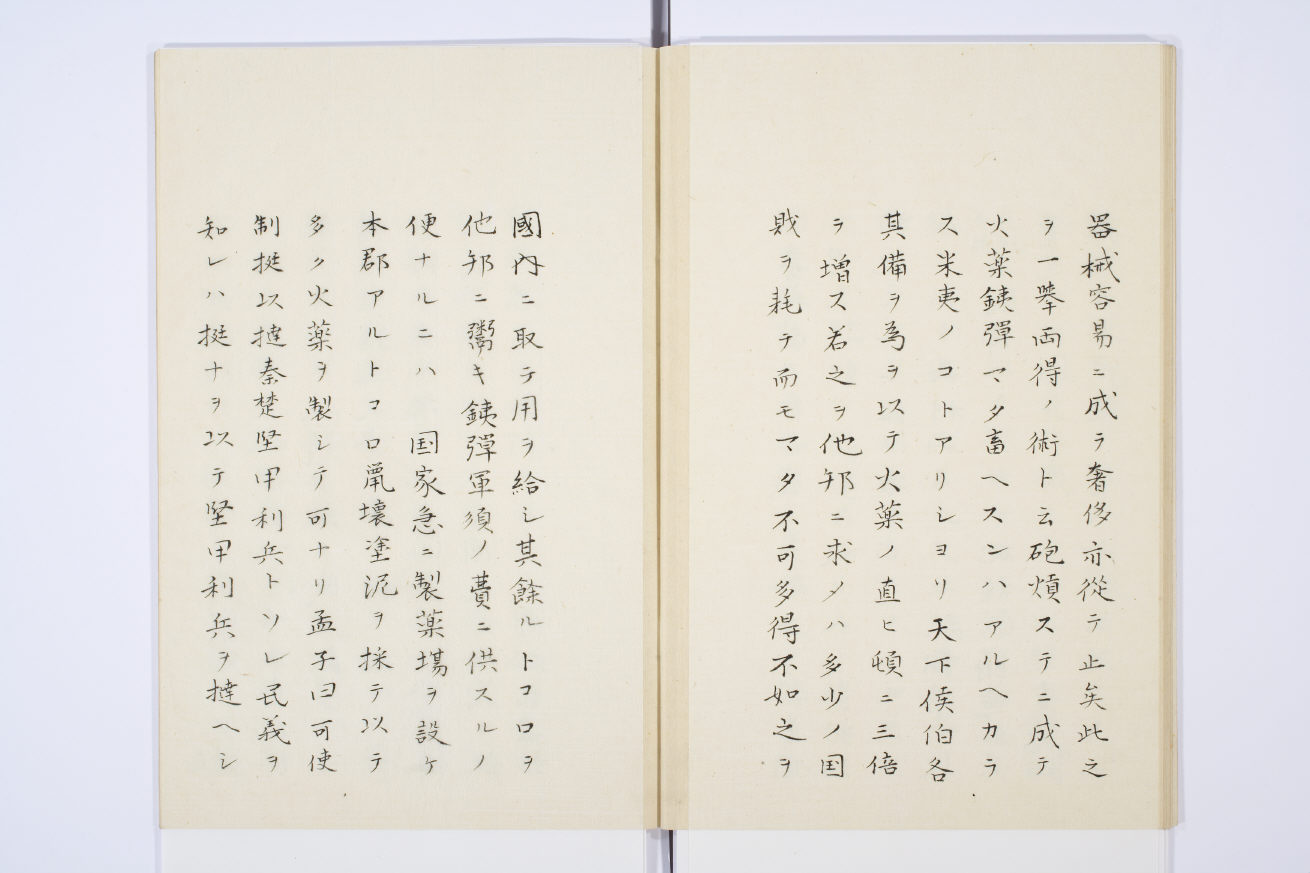 器械容易ニ成ラ奢侈亦從テ止矣此之
ヲ一擧両得ノ術ト云砲熕ステニ成テ
火薬銕彈マタ畜ヘスンハアルヘカラ
ス米夷ノコトアリシヨリ天下侯伯各
其備ヲ為ヲ以テ火薬ノ直ヒ頓ニ三倍
ヲ増ス若之ヲ他邦ニ求メハ多少ノ国
戝ヲ耗テ而モマタ不可多得不如之ヲ
國内ニ取テ用ヲ給シ其餘ルトコロヲ
他邦ニ鬻キ銕彈軍須ノ費ニ供スルノ
便ナルニハ国家急ニ製薬場ヲ設ケ
本郡アルトコロ凮壊塗泥ヲ採テ以テ
多ク火藥ヲ製シテ可ナリ孟子曰可使
制挺以撻秦楚堅甲利兵トソレ民義ヲ
知レハ挺ナヲ以テ堅甲利兵ヲ撻ヘシ